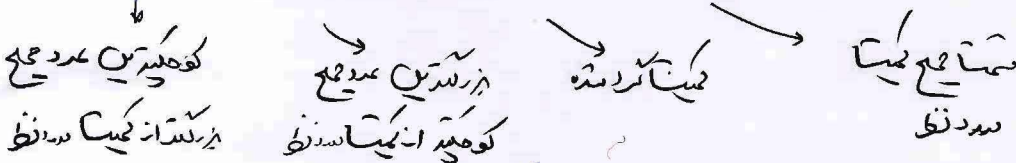 قسمت صحیح کمیت
مورد نظر
کمیت گرد شده
بزرگترین عدد صحیح
کوچکتر از کمیت مورد نظر
کوچکترین عدد صحیح
بزرگتر از کمیت مورد نظر